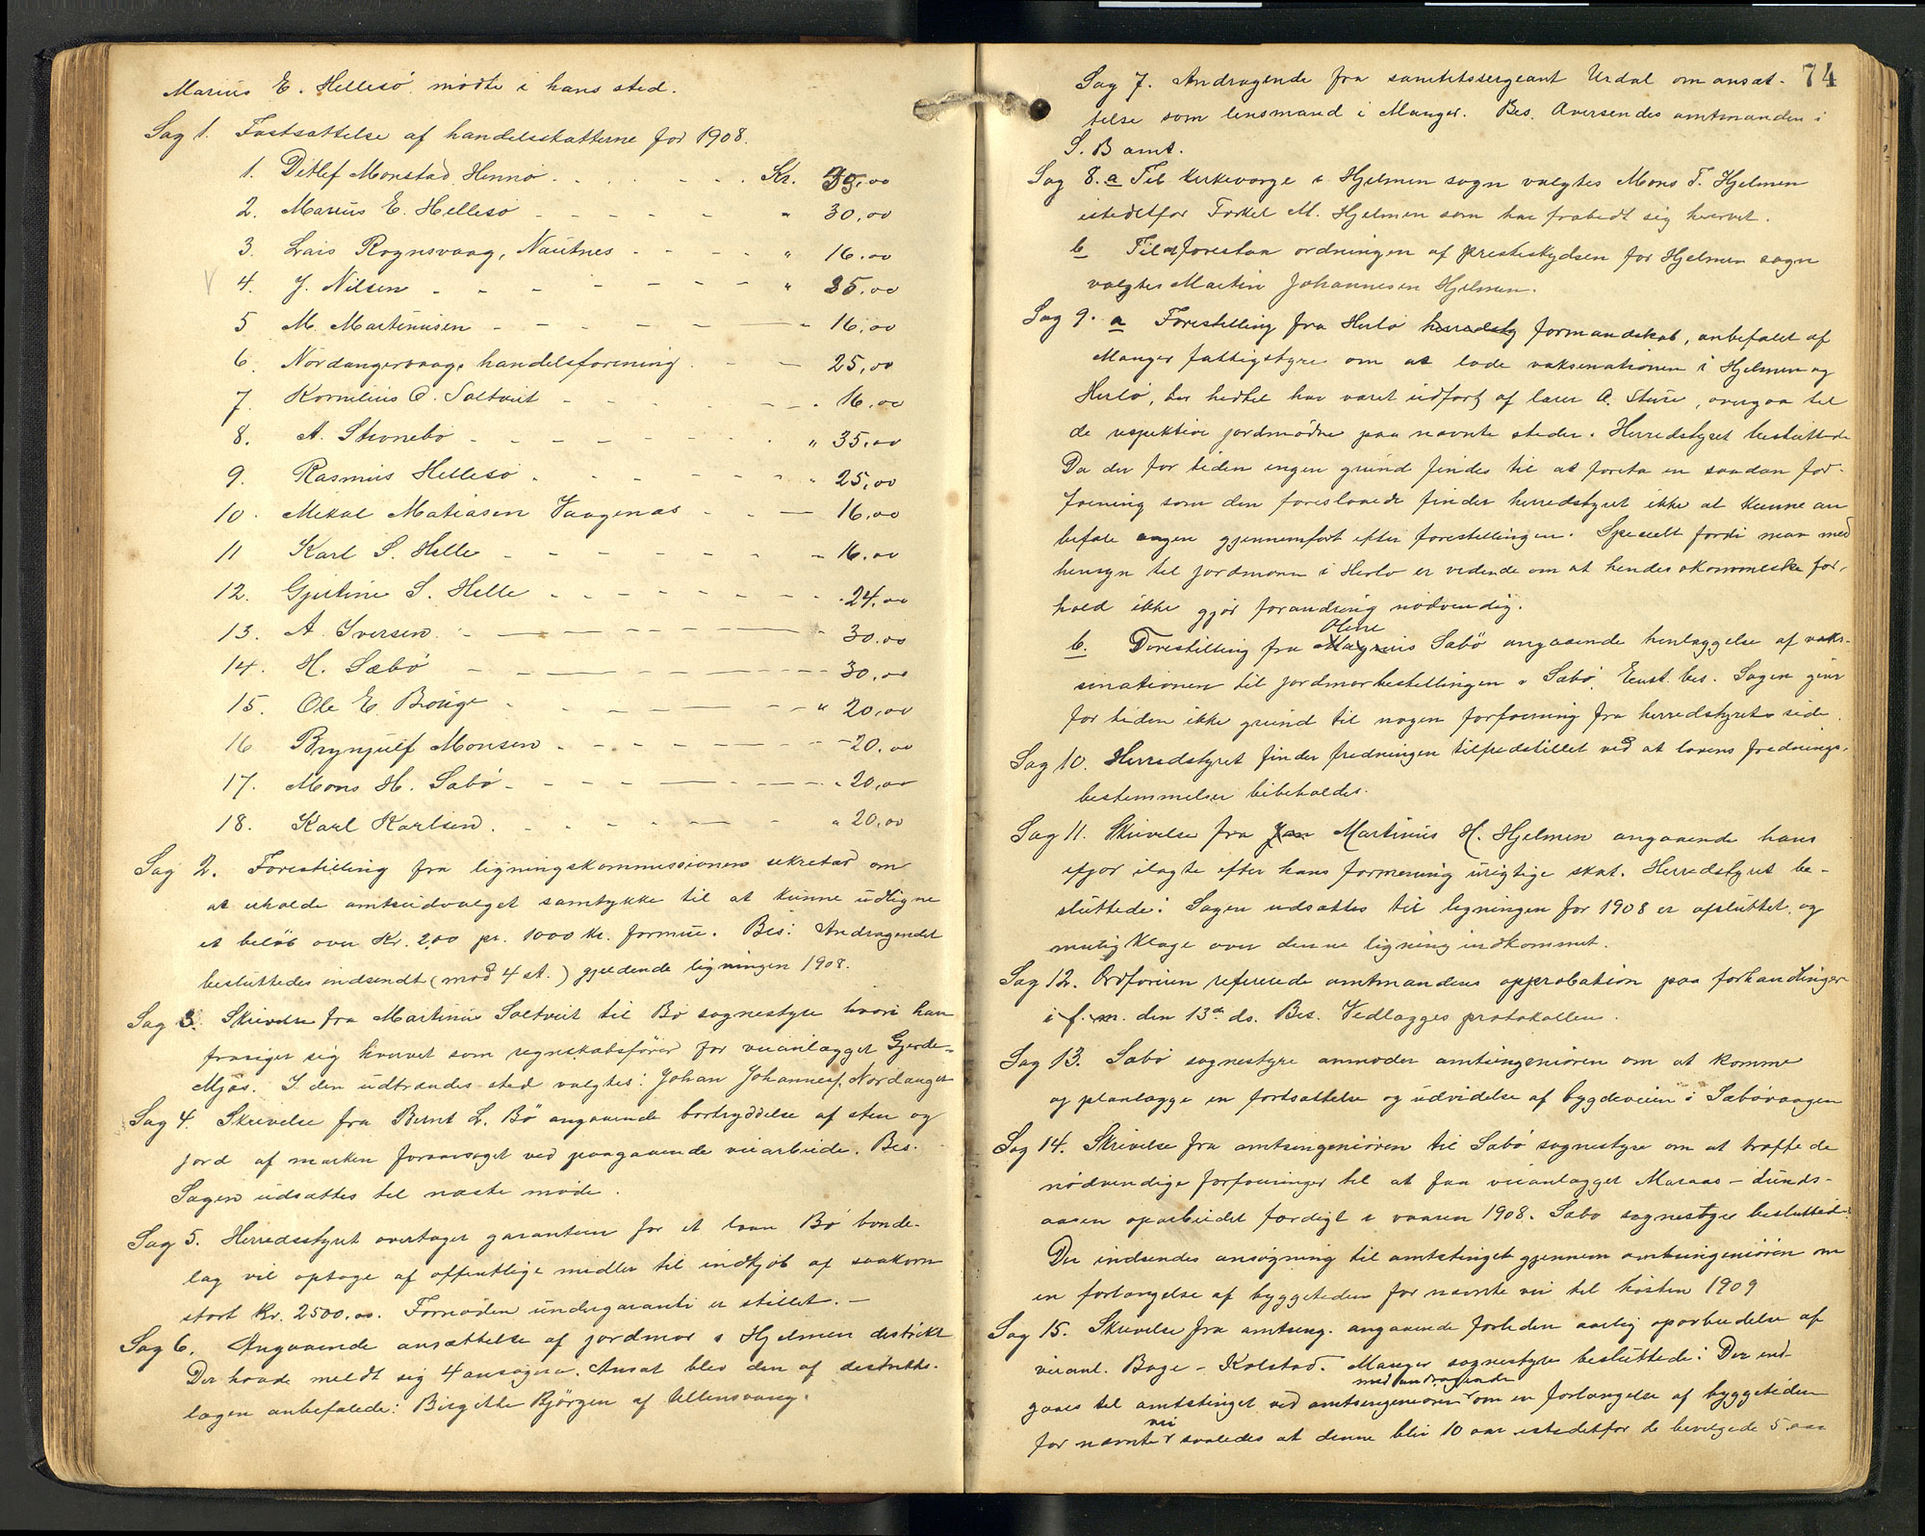 Marius E. Hellesö mödte i hans sted.
Sag 1. Fastsættelse af handelsskatterne for 1908.
1. Ditlef Monstad Hennö . . . . . . Kr. 35,00
2. Marius E. Hellesö - - - - - " 30,00
3. Lars Rognsvaag, Nautnes - - - - " 16.00
4. J. Nilsen - - - - - - - - " 35,00
5 M. Martinusen - - - - - - - 16,00
6. Nordangervaags handelsforening . - - 25,00
7. Kornelius O. Saltveit - - - - - 16,00
8. A. Stronebö - - - - - - - " 35,00
9. Rasmus Hellesö . - - - - - - " 25,00
10. Mikal Matiasen Vaagenæs - - - 16,00
11 Karl S. Helle - - - - - - - 16.00
12. Gjertine S. Helle - - - - - - - 24,00
13. A. Iversen. - - - - - - 30.00
14. H. Sæbö - - - - - - 30,00
15. Ole E. Bouge - - - - - - " 20,00
16 Brynjulf Monsen - - - - - - 20,00
17. Mons H. Sæbö - - - - - - 20,00
18. Karl Karlsen. - - - - - " 20,00
Sag 2. Forestilling fra ligningskommissionens sekretær om
at erholde amtsudvalget samtykke til at kunne udligne
et beløb over Kr. 2,00 pr. 1000 kr. formue. Bes: Andragendet
besluttedes indsendt (mod 4 st.) gjeldende ligningen 1908.
Sag 3. Skrivelse fra Martinus Saltveit til Bö sognestyre hvori han
frasiger sig hvervet som regnskabsfører for veianlægget Gjerde-
Mjøs. I den udtrædendes sted valgtes: Johan Johannes. Nordanger
Sag 4. Skrivelse fra Bernt L. Bö angaaende bortryddelse af sten og
jord af marken foraarsaget ved paagaaende veiarbeide. Bes.
Sagen udsættes til næste möde.
Sag 5. Herredsstyret overtager garantien for et laan Bö bonde-
lag vil optage af offentlige midler til indkjöb af saakorn
stort Kr. 2500,00. Fornøden undergaranti er stillet. -
Sag 6. Angaaende ansættelse af jordmor i Hjelmen distrikt
Der havde meldt sig 4 ansøgere. Ansat blev den af distrikts-
lægen anbefalede: Birgitte Björgen af Ullensvang.
74
Sag 7. Andragende fra sanitetssergeant Urdal om ansæt-
telse som lensmand i Manger. Bes. Oversendes amtmanden i
S. B amt.
Sag 8. a Til kirkeverge i Hjelmen sogn valgtes Mons T. Hjelmen
istedetfor Torkel M. Hjelmen som har frabedt sig hvervet.
b Til at forestaa ordningen af presteskydsen for Hjelmen sogn
valgtes Martin Johannesen Hjelmen.
Sag 9. a Forestilling fra Herlö herredsty formandskab, anbefalet af
Manger fattigstyre om at lade vaksinationen i Hjelmen og
Herlö, der hidtil har været udført af lærer A. Sture, overgaa til
de respektive jordmødre paa nævnte steder. Herredstyret besluttede
Da der for tiden ingen grund findes til at foreta en saadan for-
föining som den foreslaaede finder herredstyret ikke at kunne an
befale sagen gjennemført efter forestillingen. Specielt fordi man med
hensyn til jordmoren i Herlö er vidende om at hendes økonomiske for-
hold ikke gjör forandring nødvendig.
b. Forestilling fra Magnus Olene Sæbö angaaende henlæggelse af vak-
sinationen til jordmorbestillingen i Sæbö. Enst. bes. Sagen giver
for tiden ikke grund til nogen forföining fra herredstyrets side.
Sag 10. Herredstyret finder fredningen tilfredstillet ved at lovens frednings-
bestemmelser bibeholdes.
Sag 11. Skrivelse fra Jan Martinus H. Hjelmen angaaende hans
ifjor ilagte efter hans formening urigtige skat. Herredstyret be-
sluttede: Sagen udsættes til ligningen for 1908 er afsluttet og
mulig klage over denne ligning indkommet.
Sag 12. Ordføreren refererede amtmandens approbation paa forhandlinger
i f. m. den 13de ds. Bes. Vedlægges protokollen.
Sag 13. Sæbö sognestyre anmoder amtsingeniören om at komme
og planlægge en fortsættelse og udvidelse af bygdeveien i Sæbövaagen
Sag 14. Skrivelse fra amtsingeniören til Sæbö sognestyre om at træffe de
nødvendige forföininger til at faa veianlægget Maraas - Lunds-
aasen oparbeidet færdigt i vaaren 1908. Sæbö sognestyre besluttede:
Der indsendes ansøgning til amtstinget gjennem amtsingeniören om
en forlængelse af byggetiden for nævnte vei til høsten 1909
Sag 15. Skrivelse fra amtsing. angaaende forleden aarlig oparbeidelse af
veianl. Boge - Kolstad. Manger sognestyre besluttede: Der ind-
gaaes til amtstinget ved amtsingeniören med andragende om en forlængelse af byggetiden
for nævnte vei saaledes at denne blir 10 aar istedetfor de bevilgede 5 aar